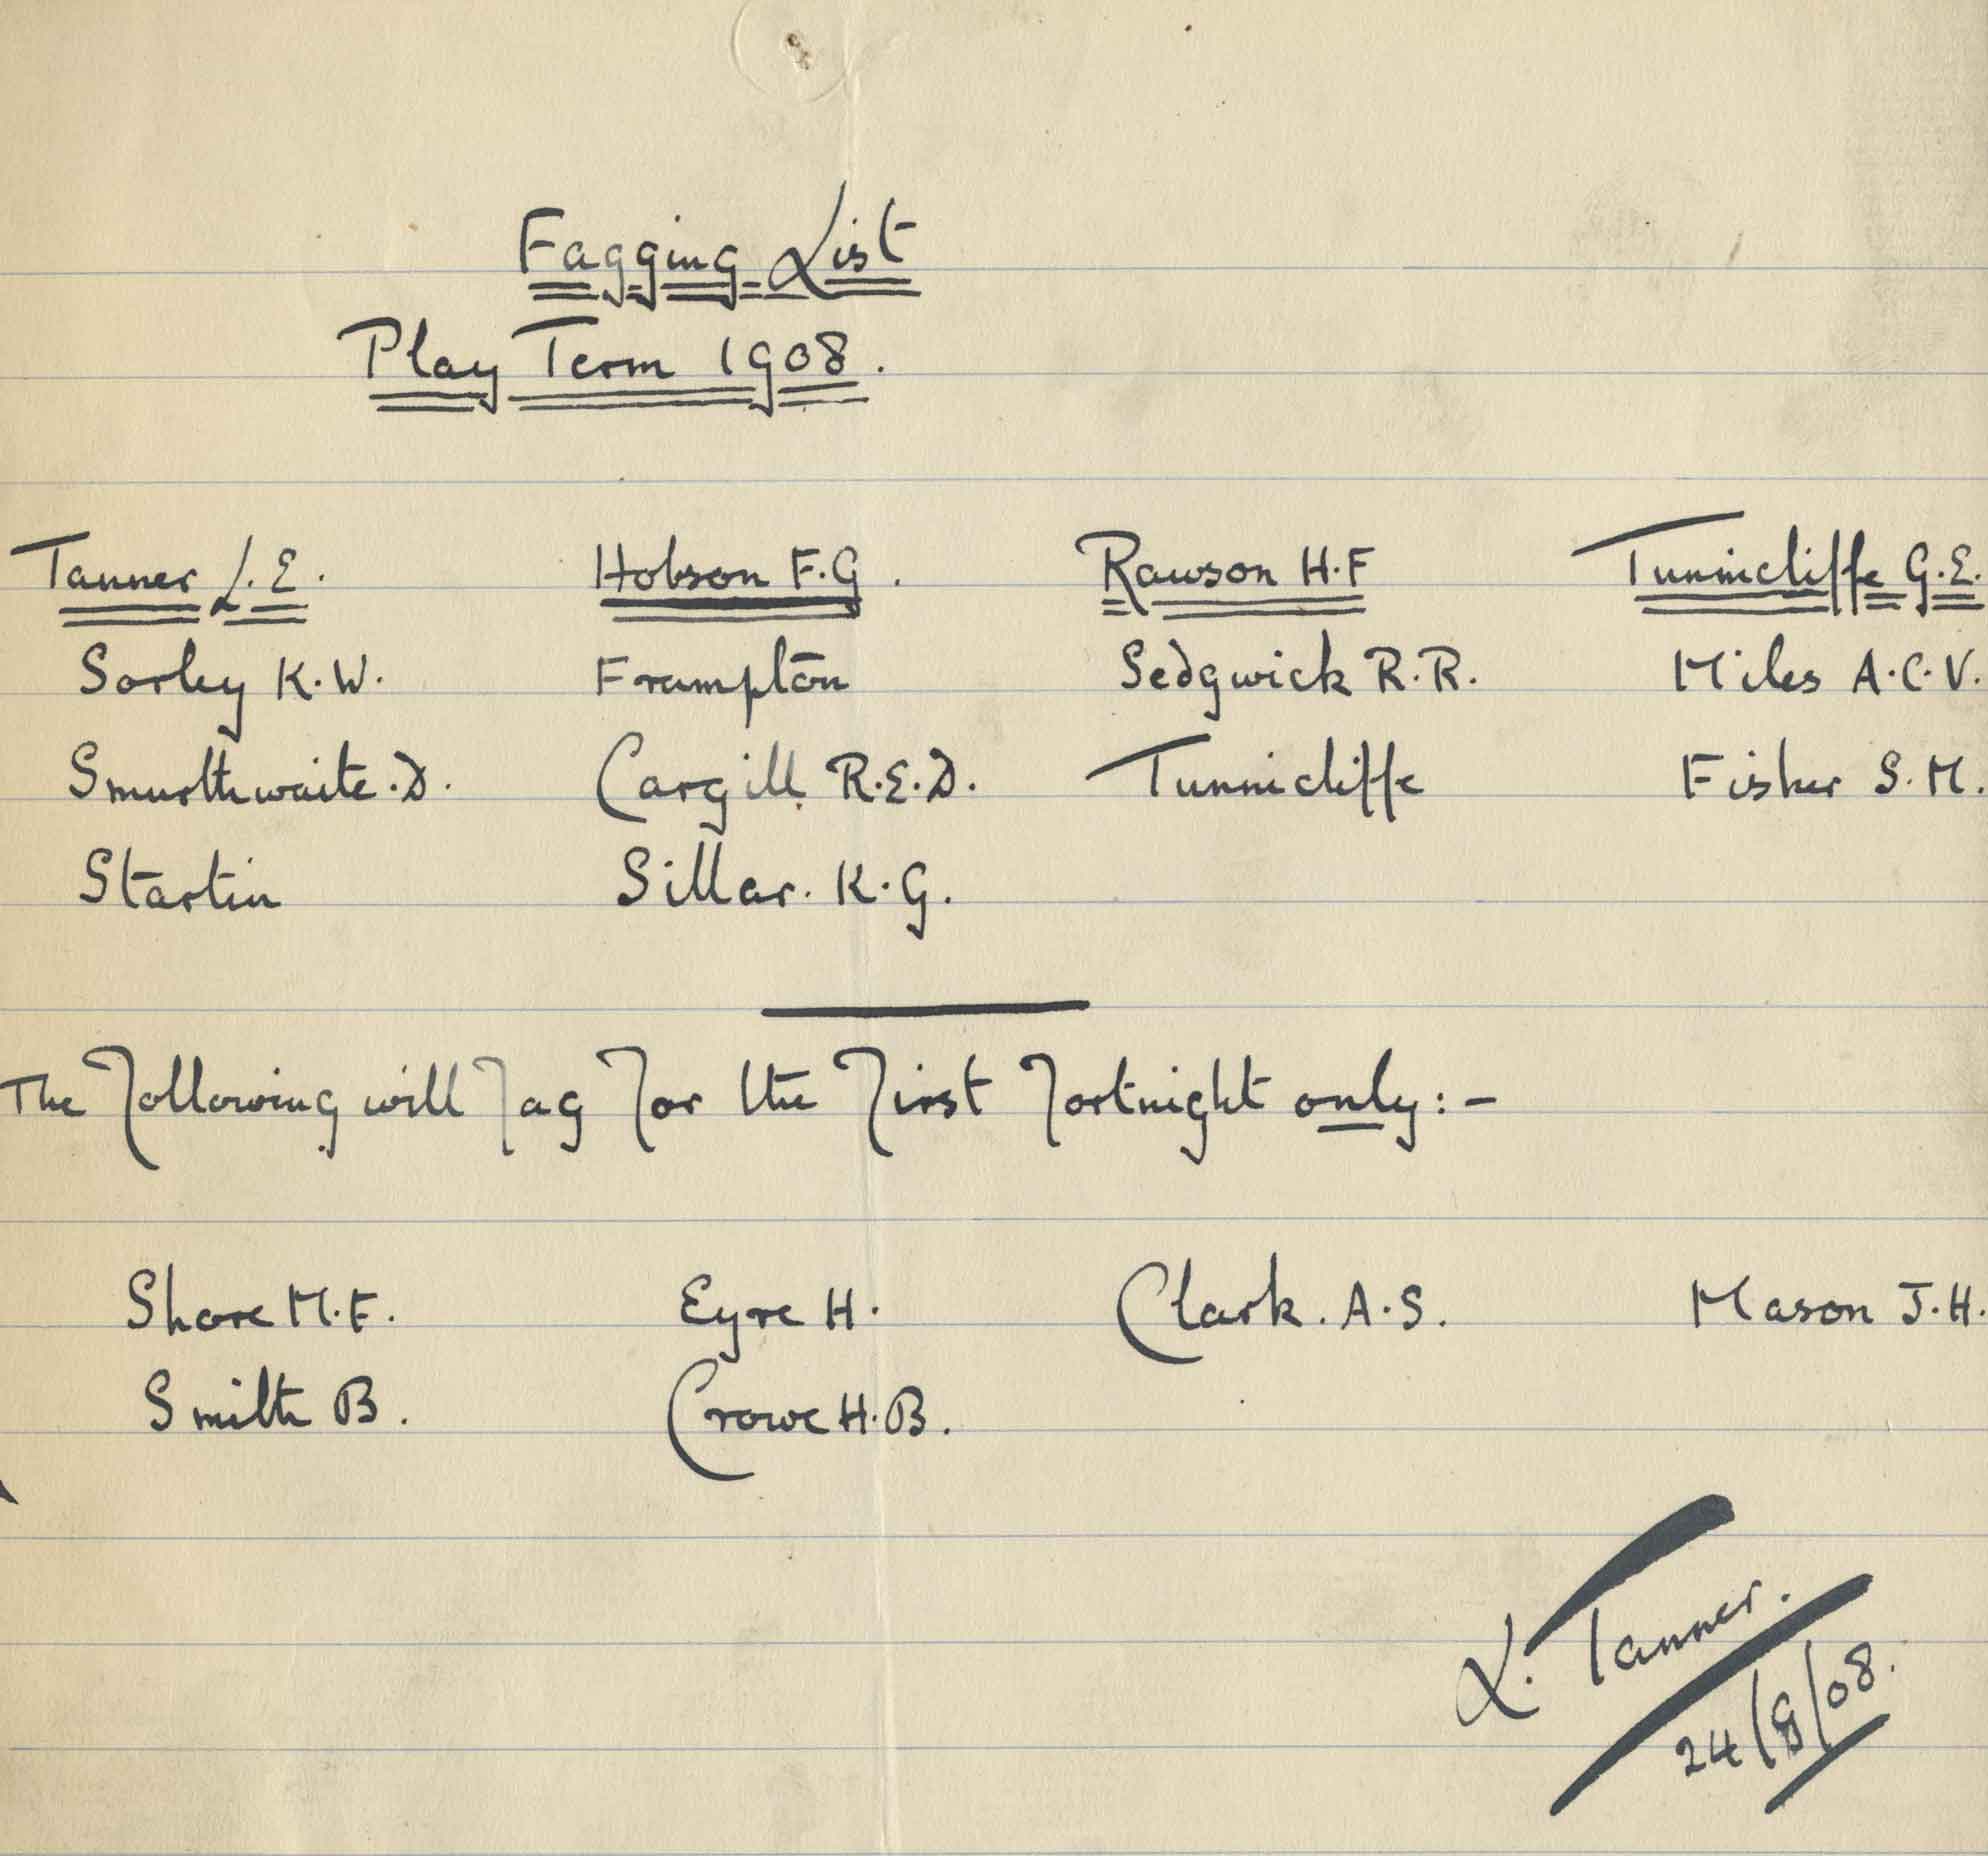 Fagging List
Play Term 1908.
Tanner L.E. Hobson F.G. Rawson H.F Tunnicliffe G.E.
Sorley K.W. Frampton Sedgwick R.R. Miles A.C.V.
Smurthwaite.D. Cargill R.E.D. Tunnicliffe Fisher S.M.
Startin Sillar. K.G.
The Following will Fag For the First Fortnight only:-
Shore M.F. Eyre H. Clark. A.S. Mason J.H.
Smith B. Crowe H.B.
L. Tanner.